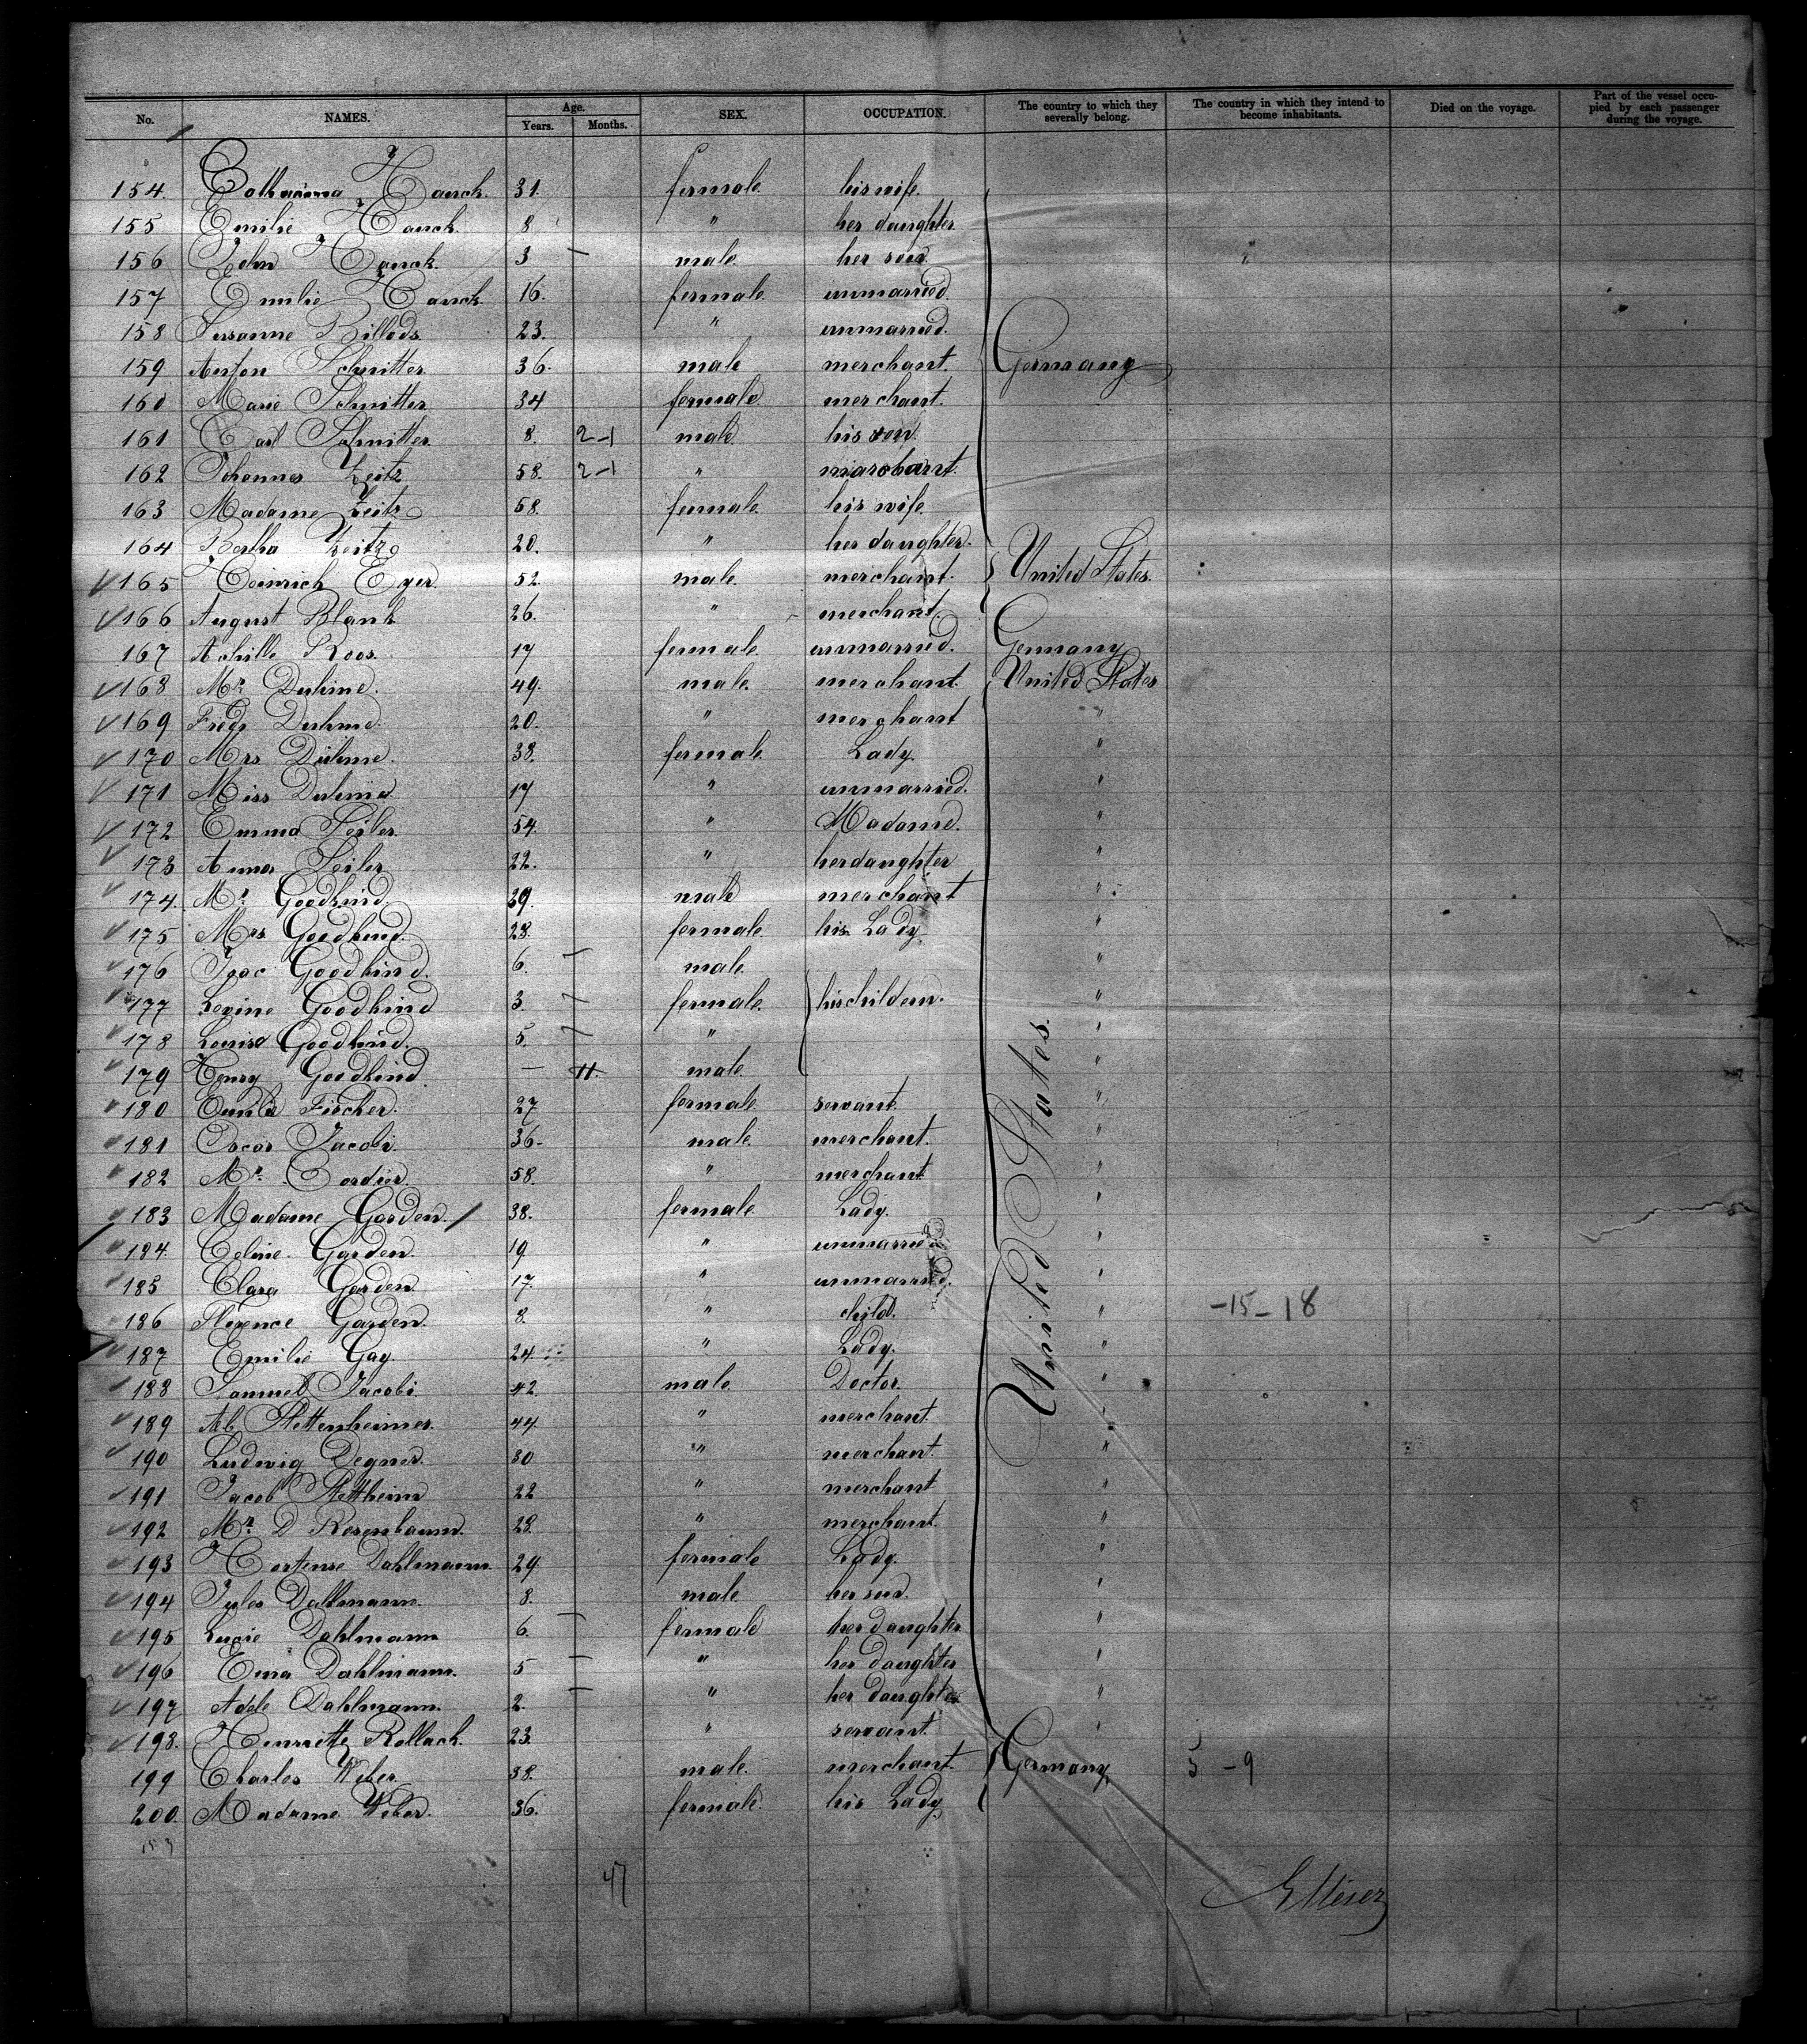 No. NAMES. Age. Years. Months. SEX. OCCUPATION. The country to which they severally belong. The country in which they intend to become inhabitants. Died on the voyage. Part of the vessel occupied by each passenger during the voyage.
154. Hauck. 31. female. his wife.
155 Emilie Hauck. 8 " her daughter
156 John Hauck. 3 male. her son.
157 Emilie Hauck 16. female. unmarried.
158 Susanne Billods. 23. " unmarried.
159 Anton Schmitter 36. male merchant. Germany
160 Marie Schmitter 34 female. merchant.
161 Carl Schmitter 8. 2-1 male. his son.
162 Johannes Zeitz 58. 2-1 " marchant.
163 Madame Zeitz 58. female. his wife.
164 Bertha Zeitz 20. " her daughter.
165 Heinrich Eyer. 52. male. merchant. United States.
166 August Blank 26. " merchant.
167 Achille Roos. 17 female unmarried. Germany
168 Mr. Duhme. 49. male. merchant. United States
169 Fredr Duhme. 20. " merchant "
170 Mrs Duhme. 38. female Lady. "
171 Miss Duhme 17 " unmarried. "
172 Emma Seiler. 54. " Madame. "
173 Anna Seiler 22. " her daughter "
174. Mr. Goodkind. 29. male merchant "
175 Mrs Goodkind. 28. female. his Lady. "
176 Isac Goodkind. 6. male. "
177 Levine Goodkind 3. female. his childern. "
178 Louisa Goodkind. 5. " "
179 Henry Goodkind. — 11. male "
180 Emilie Fischer. 27 female servant. "
181 Oscar Jacobi. 36- male. merchant. "
182 Mr. Cordier. 58. " merchant "
183 Madame Garden. 38. female Lady. "
184. Celine Garden. 19 " unmarried "
185 Clara Garden 17. " unmarried. "
186 Florence Garden. 8. " child. " -15-18
187 Emilie Gay. 24. " Lady. "
188 Samuel Jacobi 42 male Doctor. "
189 Ab. Stettenheimer. 44. " merchant. "
190 Ludwig Degner. 30 " merchant. "
191 Jacob Stettheim 22 " merchant "
192 Mr. D Rosenbaum. 28. " merchant. "
193 Hortense Dahlmann 29 female Lady. "
194 Jules Dahlmann. 8. male her son. "
195 Lucie Dahlmann 6. female her daughter "
196 Dahlmann. 5 " her daughter "
197 Adele Dahlmann. 2. " her daughter "
198. Henriette Rollach. 23. " servant. "
United States.
199 Charles Weber. 38. male. merchant. Germany, 5 - 9
200. Madame Weber. 36. female. his Lady.
153
47